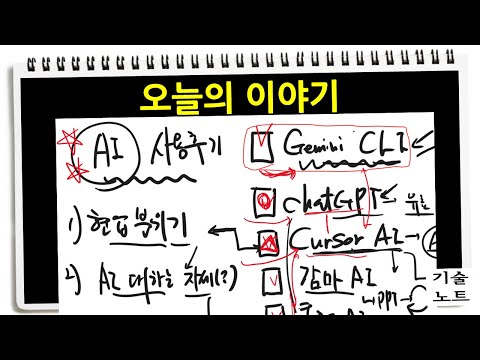 오늘의 이야기
AI 사용후기
Gemini CLI
ChatGPT
유료
1) 현업 부치기
Cursor AI
2) AI 대하는 자세(?)
감마 AI
PPT
기술
노트